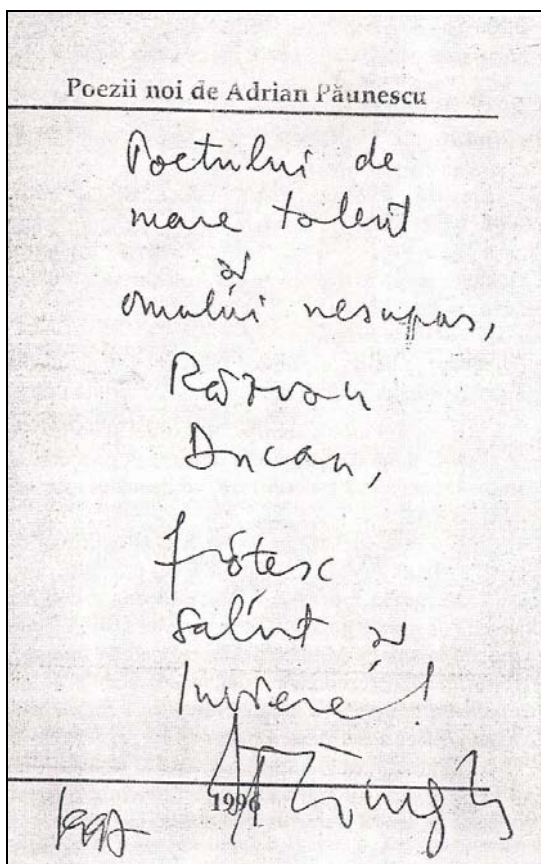 Poezii noi de Adrian Păunescu
Poetului de
mare talent
și
omului nesupus,
Răzvan
Ducan,
frățesc
salut și
Inviere!
1996